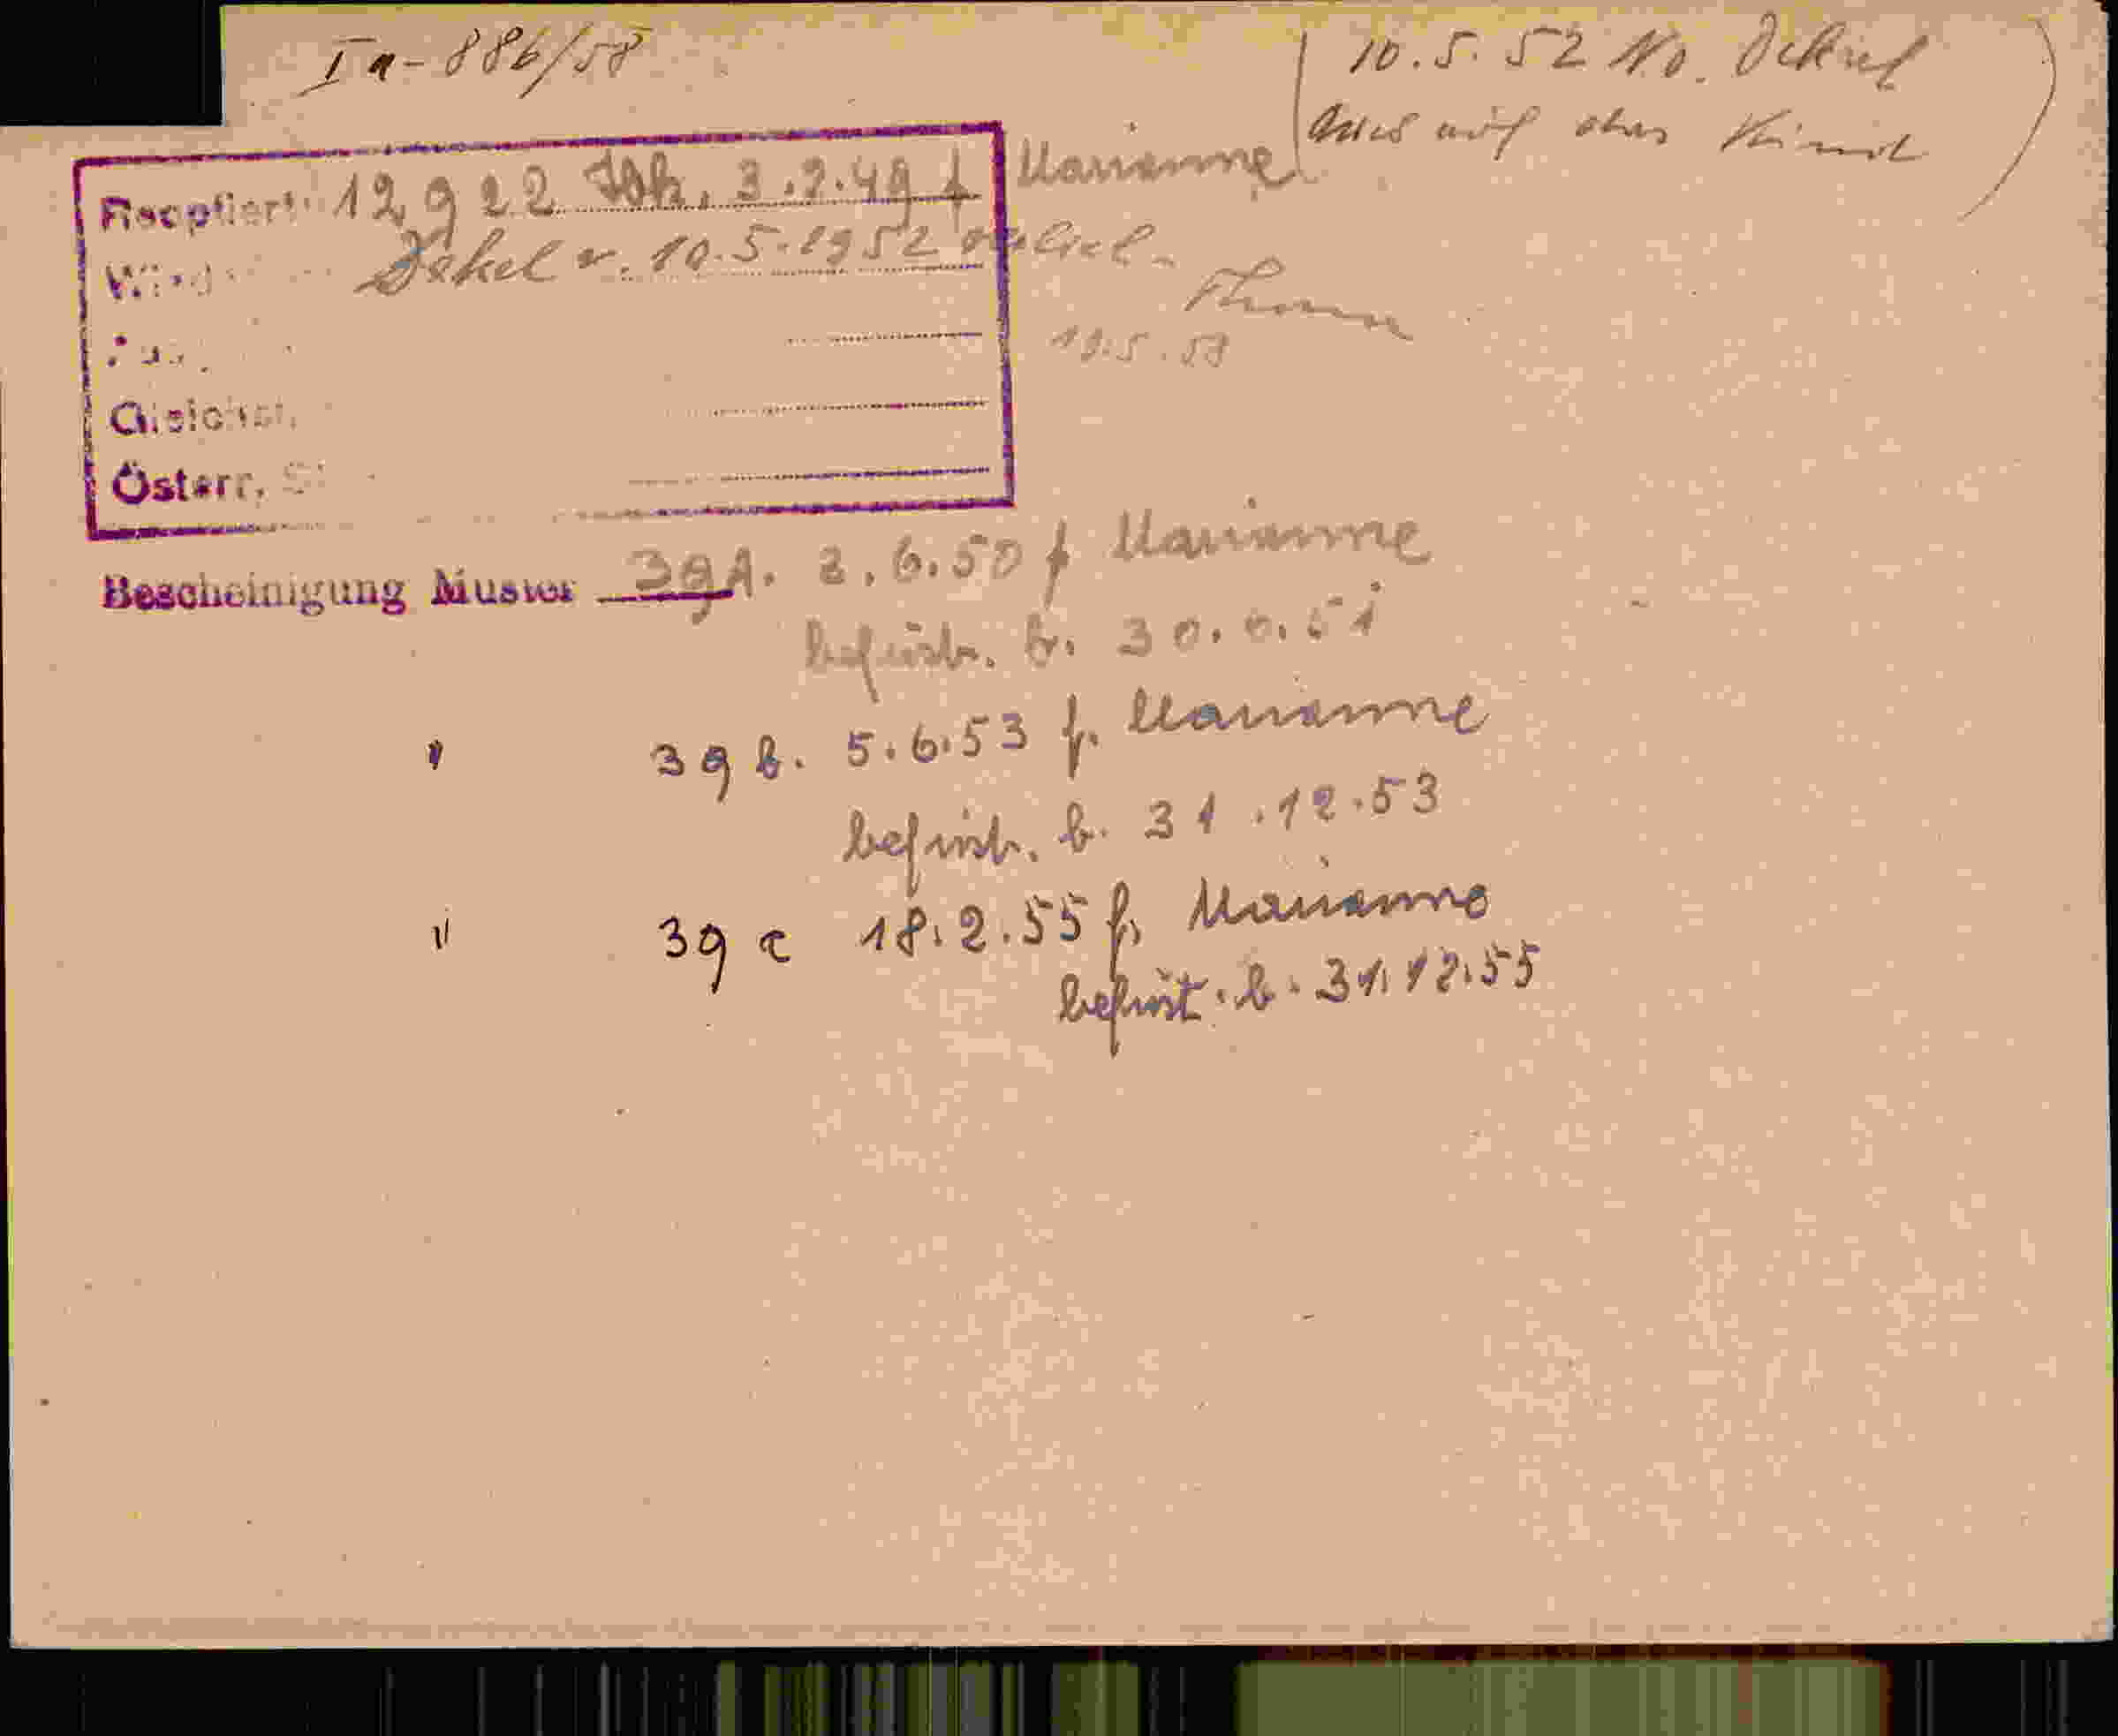 Ia-886/58
10.5.52 No. Dekret
aus auf das Kind
Rezipiert: 12922 3.2.49 f Marianne
Dekret v. 10.5.1952
10.5.58
Gleichst.
Österr. St
Bescheinigung Muster 39A. 2.6.50 f Marianne
befrist. b. 30.6.51
" 39 b. 5.6.53 f. Marianne
befrist. b. 31.12.53
" 39 c 18.2.55 f. Marianne
befrist. b. 31.12.55